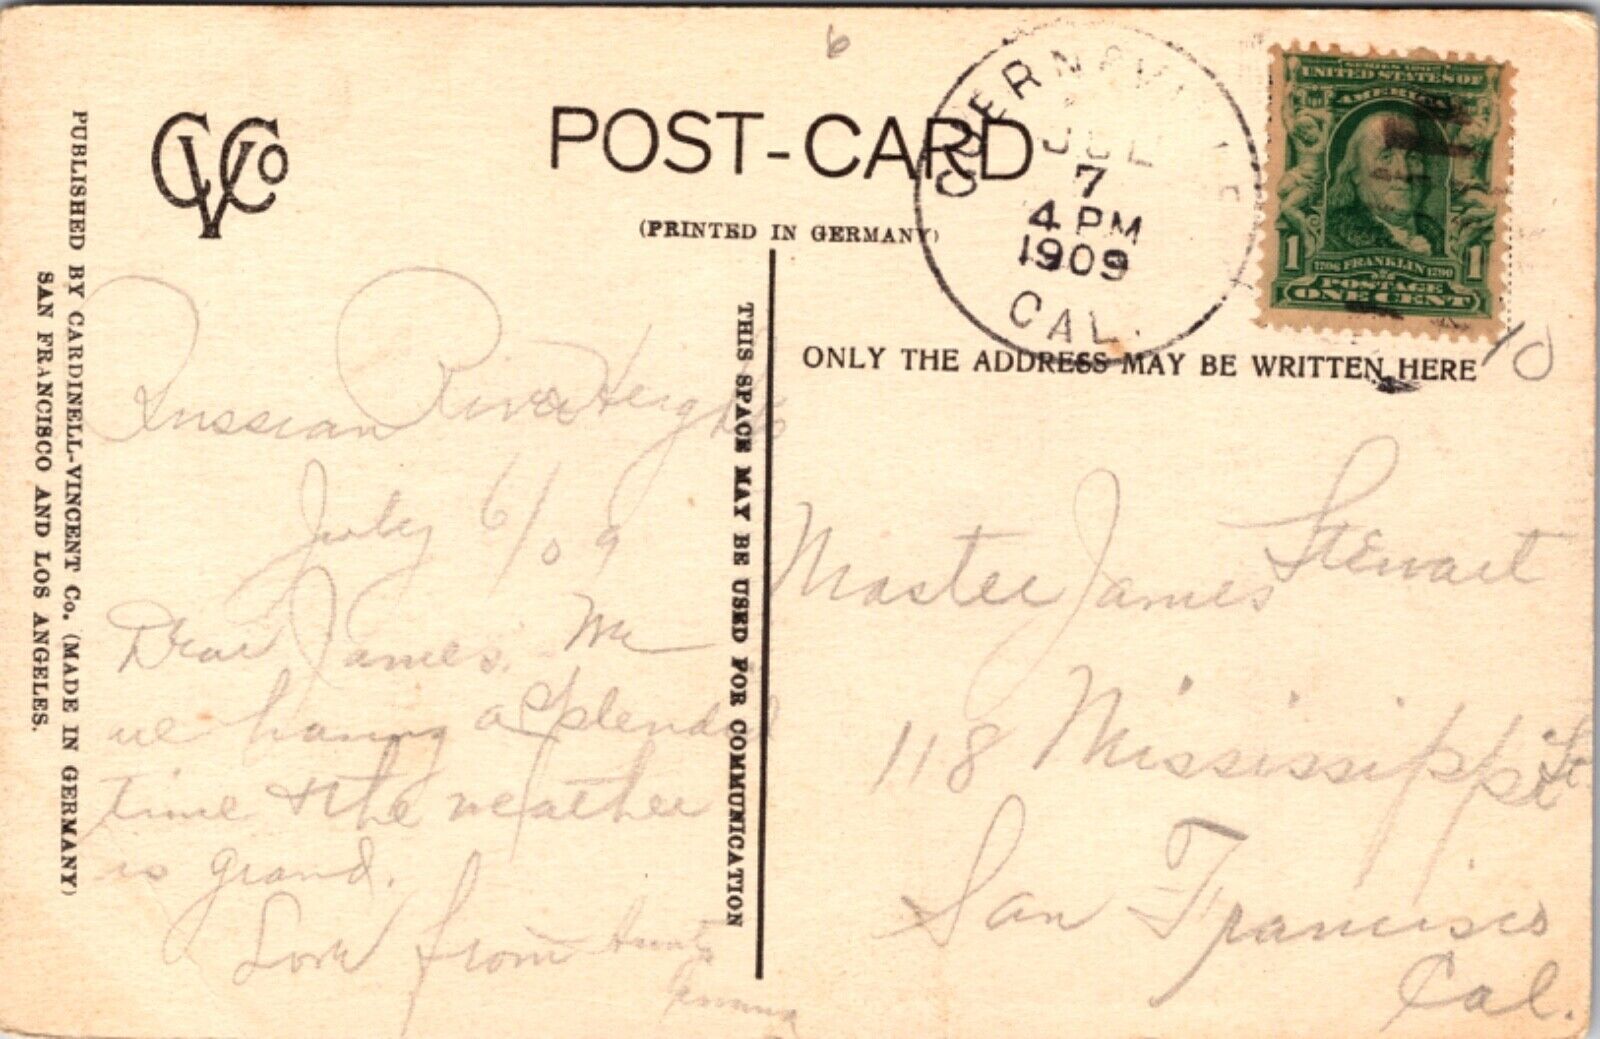 6
CVCo
POST-CARD
(PRINTED IN GERMANY)
GUERNEVILLE
JUL
7
4 PM
1909
CAL.
SERIES 1902
UNITED STATES OF
AMERICA
1 1
1706 FRANKLIN 1790
POSTAGE
ONE CENT
10
PUBLISHED BY CARDINELL-VINCENT Co. (MADE IN GERMANY)
SAN FRANCISCO AND LOS ANGELES.
THIS SPACE MAY BE USED FOR COMMUNICATION
ONLY THE ADDRESS MAY BE WRITTEN HERE
Russian River Heights
July 6/09
Dear James.
we having a splendid
time & the weather
is grand.
Love from Aunt
Emma
Master James Stewart
118 Mississippi St.
San Francisco
Cal.